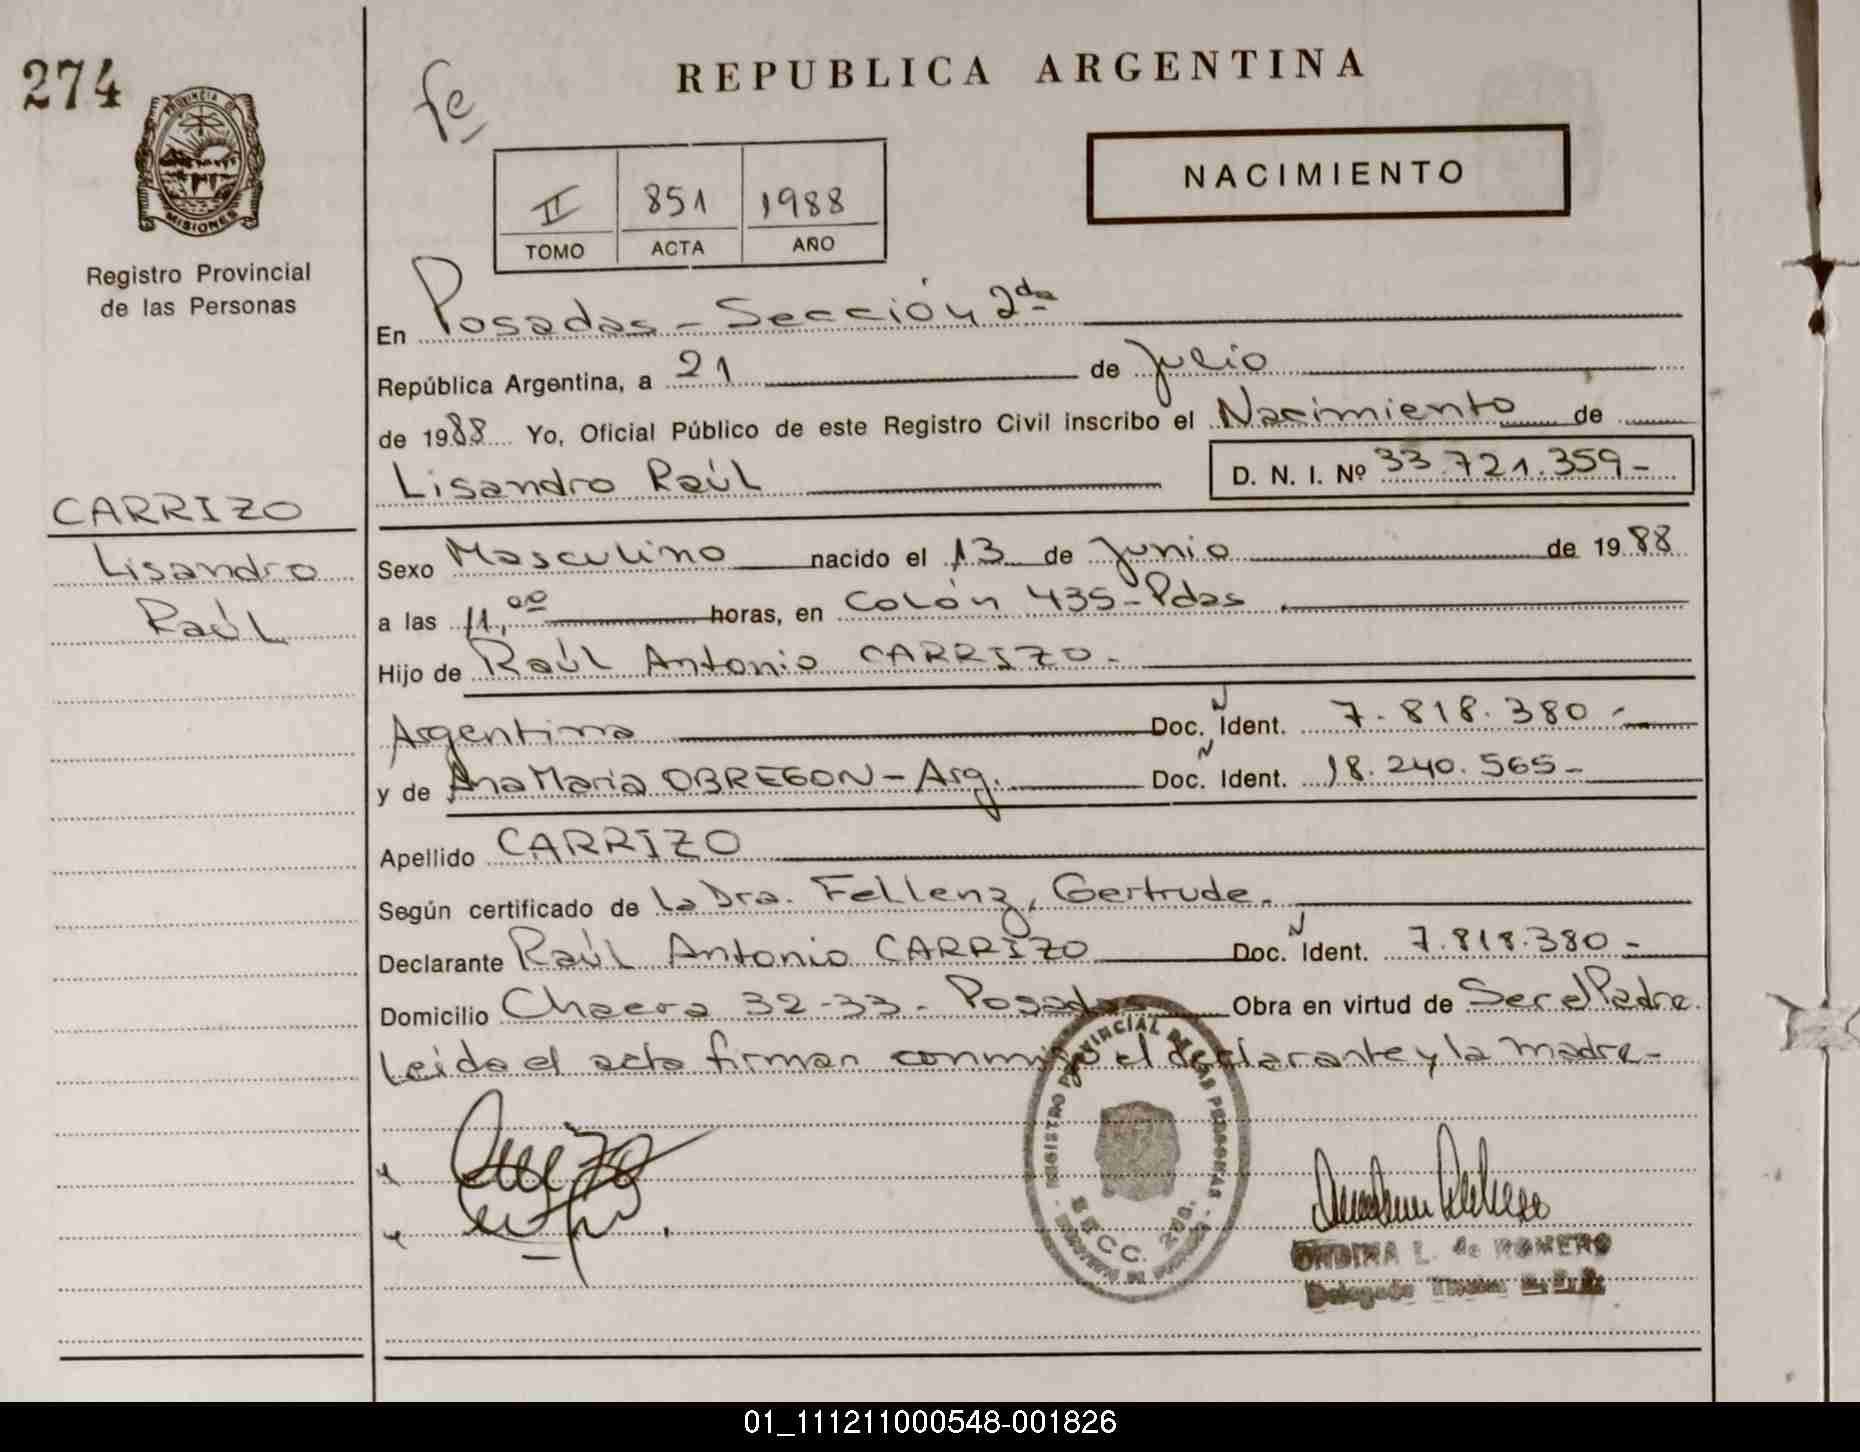 274
REPUBLICA ARGENTINA
fe
PROVINCIA DE
MISIONES
Registro Provincial
de las Personas
II 851 1988
TOMO ACTA AÑO
NACIMIENTO
En Posadas - Sección 2da
República Argentina, a 21 de Julio
de 1988 Yo, Oficial Público de este Registro Civil inscribo el Nacimiento de
Lisandro Raúl D. N. I. Nº 33.721.359-
CARRIZO
Lisandro
Raúl
Sexo Masculino nacido el 13 de Junio de 1988
a las 11,00 horas, en Colón 435-Pdas
Hijo de Raúl Antonio CARRIZO-
Argentina Doc. N Ident. 7.818.380-
y de Ana Maria OBREGON - Arg. Doc. N Ident. 18.240.565-
Apellido CARRIZO
Según certificado de la Dra. Fellenz, Gertrude.
Declarante Raúl Antonio CARRIZO Doc. N Ident. 7.818.380-
Domicilio Chacra 32-33- Posadas Obra en virtud de Ser el Padre.
Leida el acta firman conmigo el declarante y la madre-
REGISTRO PROVINCIAL DE LAS PERSONAS
SECC. 2da.
ONDINA L. de ROMERO
Delegado
01_111211000548-001826